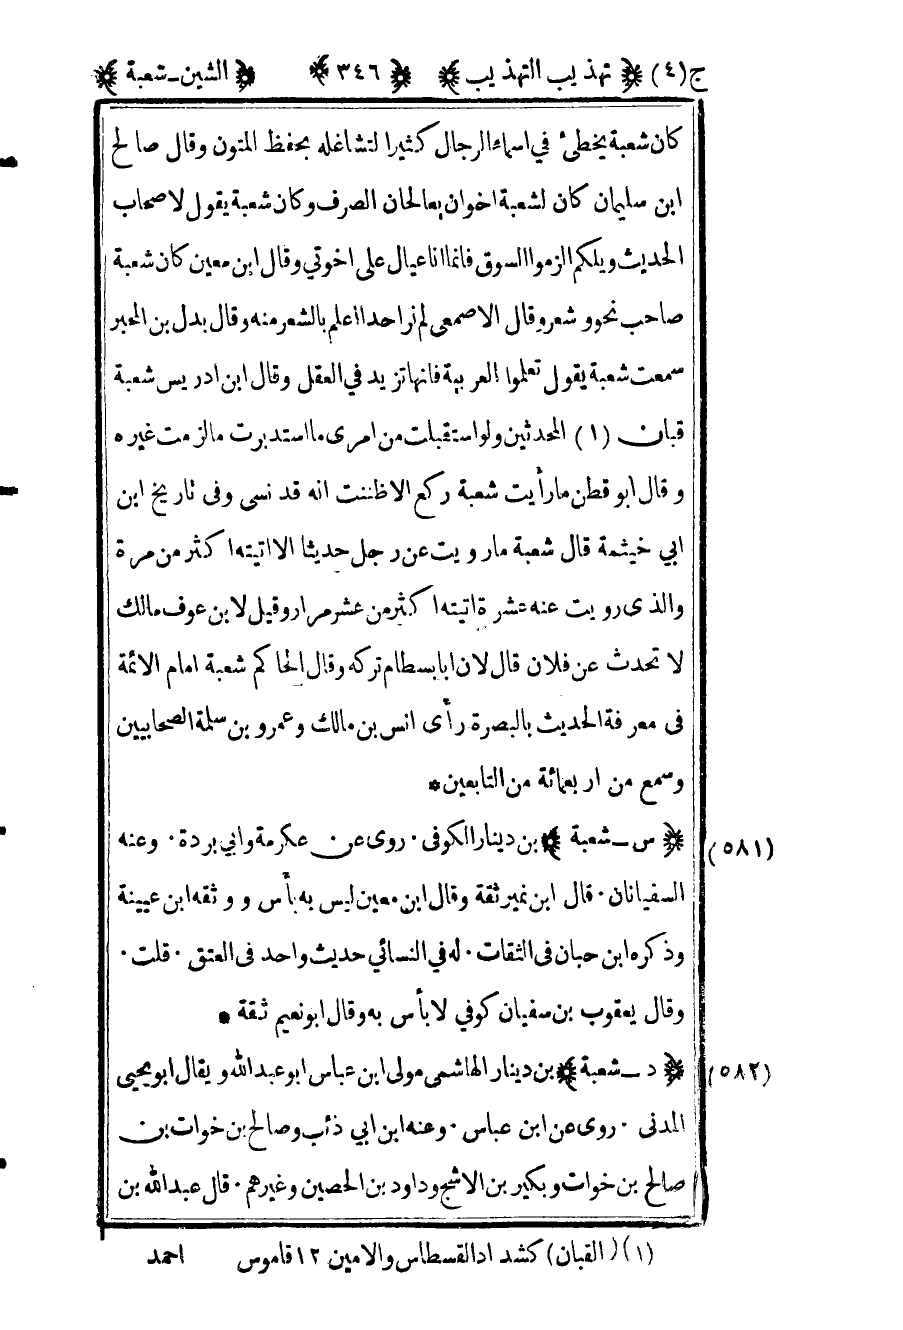 ج(٤) ﴿ تهذيب التهذيب ﴾ ﴿ ٣٤٦ ﴾ ﴿ الشين ـ شعبة ﴾
كان شعبة يخطئ في اسماء الرجال كثيرا لتشاغله بحفظ المتون وقال صالح
ابن سليمان كان لشعبة اخوان يعالجان الصرف وكان شعبة يقول لاصحاب
الحديث ويلكم الزموا السوق فانما انا عيال على اخوتي وقال ابن معين كان شعبة
صاحب نحو و شعر وقال الاصمعي لم نر احدا اعلم بالشعر منه وقال بدل بن المحبر
سمعت شعبة يقول تعلموا العربية فانها تزيد في العقل وقال ابن ادريس شعبة
قبان (١) المحدثين ولو استقبلت من امرى ما استدبرت ما لزمت غيره
و قال ابو قطن ما رأيت شعبة ركع الا ظننت انه قد نسى وفى تاريخ ابن
ابي خيثمة قال شعبة ما رويت عن رجل حديثا الا اتيته اكثر من مرة
والذى رويت عنه عشرة اتيته اكثر من عشر مرار وقيل لابن عوف مالك
لا تحدث عن فلان قال لان ابا بسطام تركه وقال الحاكم شعبة امام الائمة
فى معرفة الحديث بالبصرة رأى انس بن مالك وعمرو بن سلمة الصحابيين
وسمع من اربعمائة من التابعين *
(٥٨١) ﴿ س ـ شعبة ﴾ بن دينار الكوفى ٠ روى عن عكرمة وابي بردة ٠ وعنه
السفيانان ٠ قال ابن نمير ثقة وقال ابن معين ليس به بأس و وثقه ابن عيينة
وذكره ابن حبان فى الثقات ٠ له في النسائي حديث واحد فى العتق ٠ قلت ٠
وقال يعقوب بن سفيان كوفي لا بأس به وقال ابو نعيم ثقة *
(٥٨٢) ﴿ د ـ شعبة ﴾ بن دينار الهاشمى مولى ابن عباس ابو عبد الله ويقال ابو يحيى
المدنى ٠ روى عن ابن عباس ٠ وعنه ابن ابي ذئب وصالح بن خوات بن
صالح بن خوات و بكير بن الاشج وداود بن الحصين وغيرهم ٠ قال عبد الله بن
(١) (القبان) كشداد القسطاس والامين ١٢ قاموس احمد